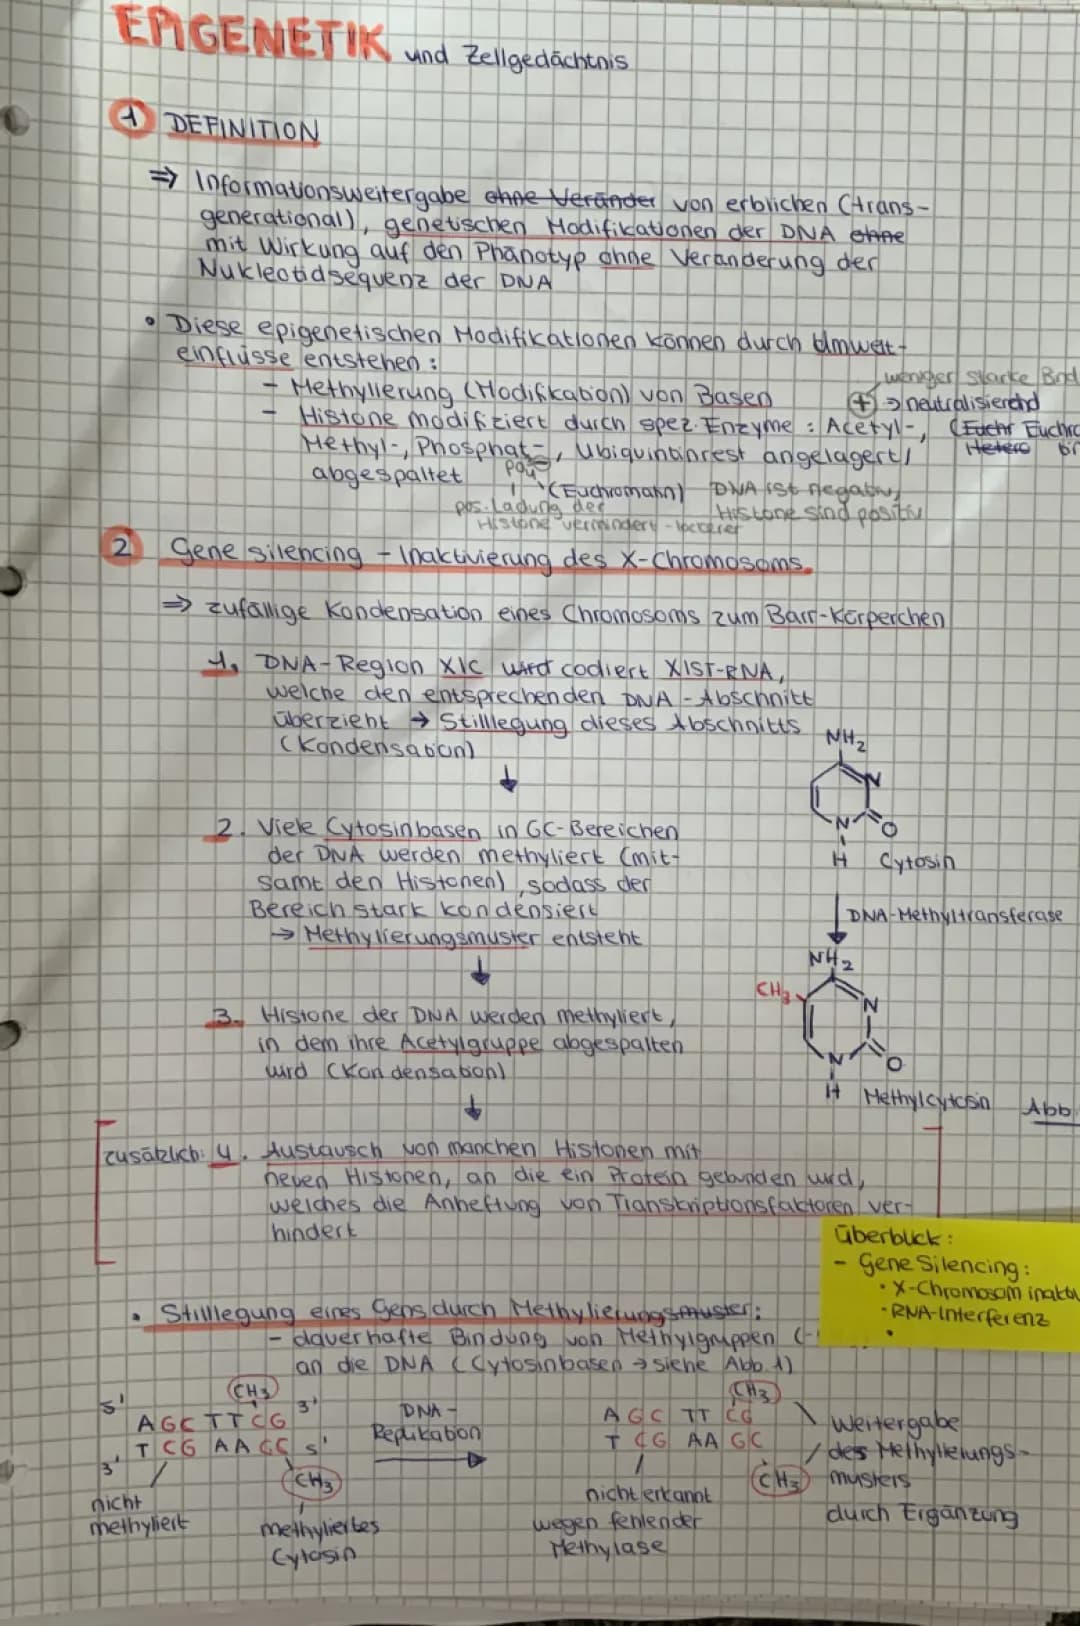 EPIGENETIK und Zellgedächtnis
1 DEFINITION
⇒ Informationsweitergabe ohne Veränder von erblichen (trans-
generational), genetischen Modifikationen der DNA ohne
mit Wirkung auf den Phänotyp ohne Veränderung der
Nukleotidsequenz der DNA
• Diese epigenetischen Modifikationen können durch Umwelt-
einflüsse entstehen:
weniger starke Bnd
- Methylierung (Modifikation) von Basen
(+) → neutralisierend
- Histone modifiziert durch spez. Enzyme: Acetyl-,
(Euchr Euchro
Methyl-, Phosphat-, Ubiquintinrest angelagert/
Hetero
abgespaltet
(Euchromatin) DNA ist negativ,
pos. Ladung der Histone sind positiv
Histone vermindert - lockerer
2 Gene silencing - Inaktivierung des X-Chromosoms
⇒ zufällige Kondensation eines Chromosoms zum Barr-Körperchen
1. DNA-Region XIC wird codiert XIST-RNA,
welche den entsprechenden DNA-Abschnitt
überzieht → Stilllegung dieses Abschnitts
(Kondensation)
NH2
N
N
O
H Cytosin
2. Viele Cytosinbasen in GC-Bereichen
der DNA werden methyliert (mit-
samt den Histonen), sodass der
Bereich stark kondensiert
→ Methylierungsmuster entsteht
DNA-Methyltransferase
NH2
CH3
N
N
O
H Methylcytosin Abb
3. Histone der DNA werden methyliert,
in dem ihre Acetylgruppe abgespalten
wird (Kondensation)
zusätzlich: 4. Austausch von manchen Histonen mit
neuen Histonen, an die ein Protein gebunden wird,
welches die Anheftung von Transkriptionsfaktoren ver-
hindert
überblick:
- Gene Silencing:
• X-Chromosom inaktiv
• RNA-Interferenz
•
• Stilllegung eines Gens durch Methylierungsmuster:
- dauerhafte Bindung von Methylgruppen (-
an die DNA (Cytosinbasen → siehe Abb. 1)
CH3
5' AGC TT CG 3'
3' T CG AA GC 5'
CH3
nicht
methyliert
methyliertes
Cytosin
DNA-
Replikation
CH3
AGC TT CG
T CG AA GC
CH3
nicht erkannt
wegen fehlender
Methylase
Weitergabe
des Methylierungs-
musters
durch Ergänzung